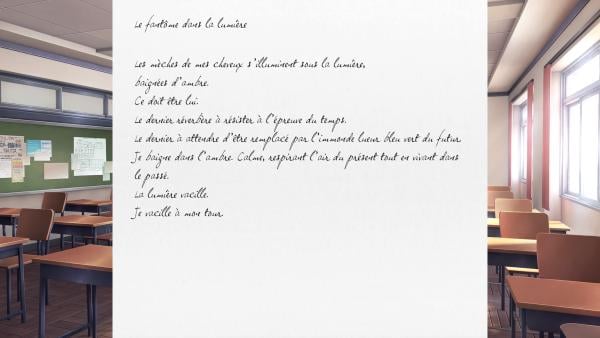 Le fantôme dans la lumière
Les mèches de mes cheveux s'illuminent sous la lumière,
baignées d'ambre.
Ce doit être lui.
Le dernier réverbère à résister à l'épreuve du temps.
Le dernier à attendre d'être remplacé par l'immonde lueur bleu vert du futur.
Je baigne dans l'ambre. Calme, respirant l'air du présent tout en vivant dans
le passé.
La lumière vacille.
Je vacille à mon tour.